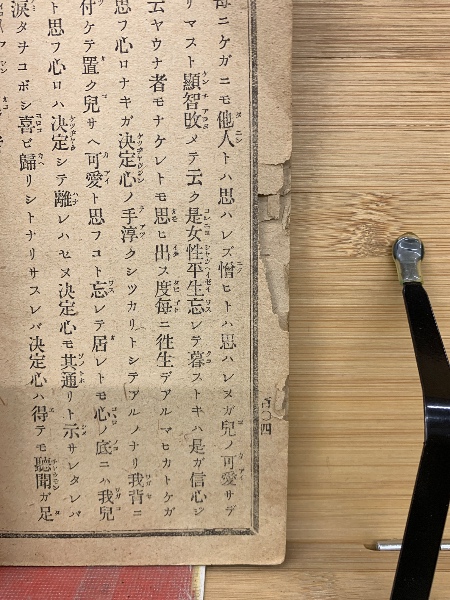 毎ニケガニモ他人トハ思ハレズ憎ヒトハ思ハレヌガ兒ノ可愛サデ
リマスト顯智攺メテ云ク是女性平生忘レテ暮ストキハ是ガ信心ジ
云ヤウナ者モナケレトモ思ヒ出ス度毎ニ徃生デアルマヒカトケガ
ト思フ心ロナキガ決定心ノ手淳クシツカリトシテアルノナリ我背ニ
付ケテ置ク兒サヘ可愛ト思フコト忘レテ居レトモ心ノ底ニハ我兒
ト思フ心ロハ決定シテ離レハセヌ決定心モ其通リト示サレタレバ
涙タナコボシ喜ビ歸リシトナリサスレバ決定心ハ得テモ聽聞ガ足
百〇四